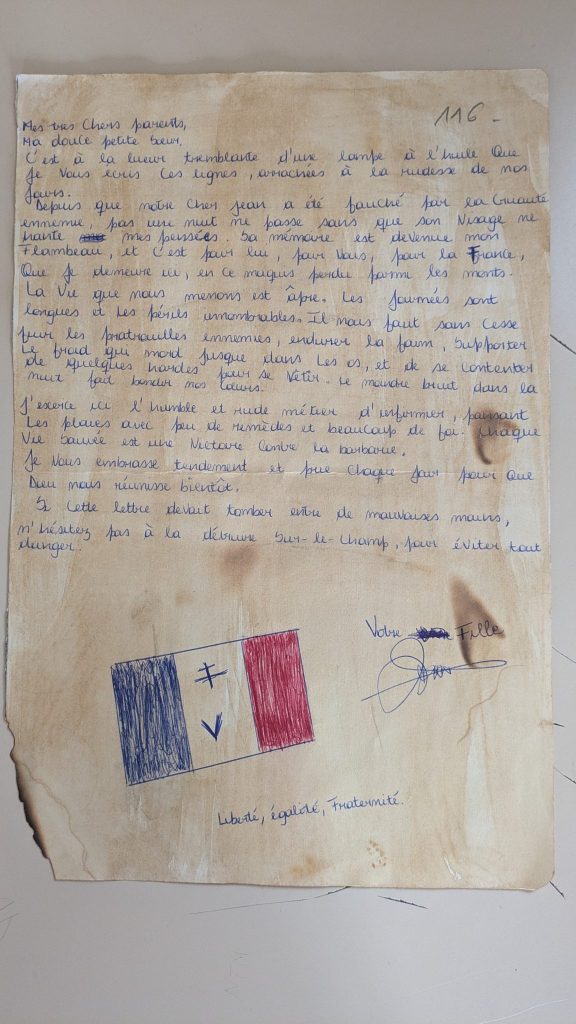 116-
Mes tres Chers parents,
Ma douce petite Sœur.
C'est à la lueur tremblante d'une lampe à l'huile Que
Je Vous écris Ces lignes, arrachées à la rudesse de nos
Jours.
Depuis que notre Cher Jean a été fauché par la Cruauté
ennemie, pas une nuit ne passe sans que son Visage ne
hante mes pensées. Sa mémoire est devenue mon
Flambeau, et C'est pour lui, pour Vous, pour la France,
Que je demeure ici, en ce maquis perdu parmi les monts.
La Vie que nous menons est âpre. Les Journées sont
longues et les périls innombrables. Il nous faut sans Cesse
fuir les pratrouilles ennemies, endurer la faim, Supporter
Le froid qui mord jusque dans Les os, et de se contenter
de quelques hardes pour se Vêtir. Le moindre bruit dans la
nuit fait bondir nos Cœurs.
J'exerce ici l'humble et rude métier d'infirmier, pansant
Les plaies avec peu de remèdes et beaucoup de foi. Chaque
Vie Sauvée est une Victoire Contre la barbarie.
Je Vous embrasse tendrement et prie Chaque Jour pour Que
Dieu nous réunisse bientôt.
Si Cette lettre devait tomber entre de mauvaises mains,
n'hésitez pas à la détruire Sur-le-Champ, pour éviter tout
danger.
Votre Fille
V
Liberté, égalité, Fraternité.